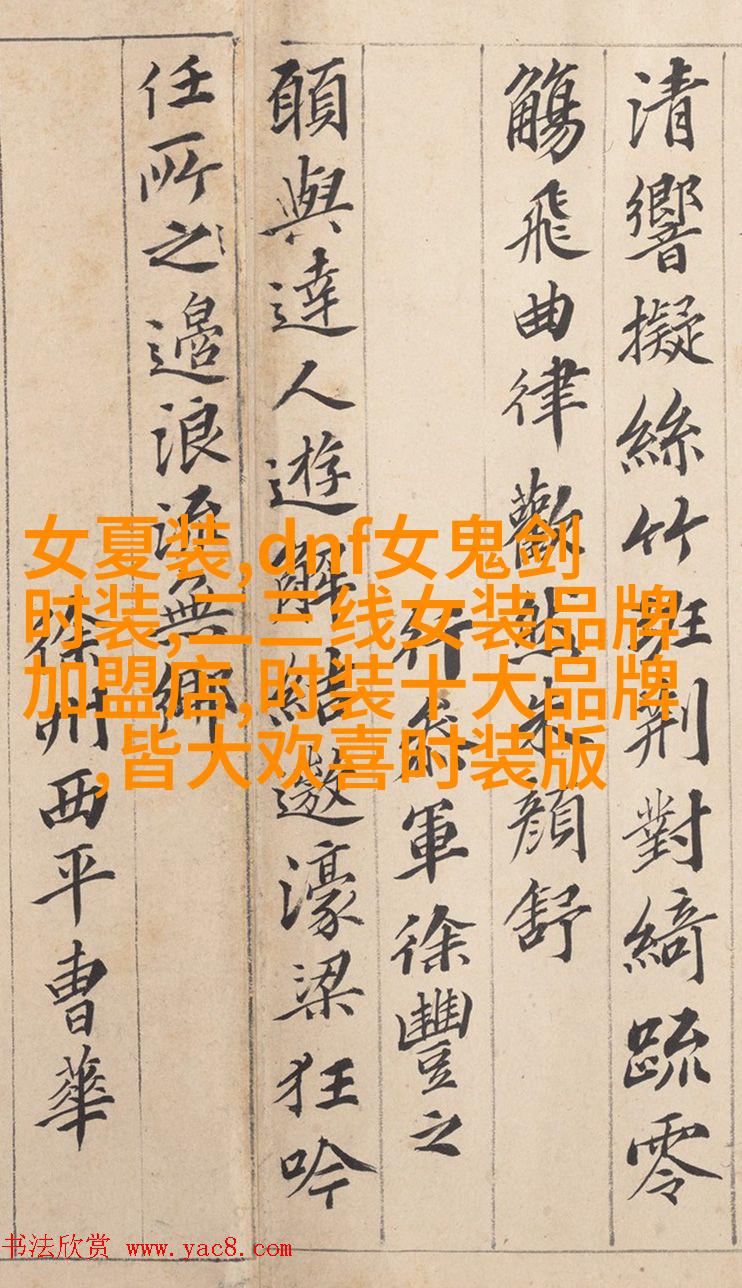 清響擬絲竹班荆對綺疏零
觴飛曲律歡然朱顔舒
行叅軍徐豐之
願與達人遊解結遨濠梁狂吟
任所之邉浪流無鄉
徐州西平曹華
女夏装,dnf女鬼剑
时装,二三线女装品牌
加盟店,时装十大品牌
,皆大欢喜时装版
书法欣赏 www.yac8.com